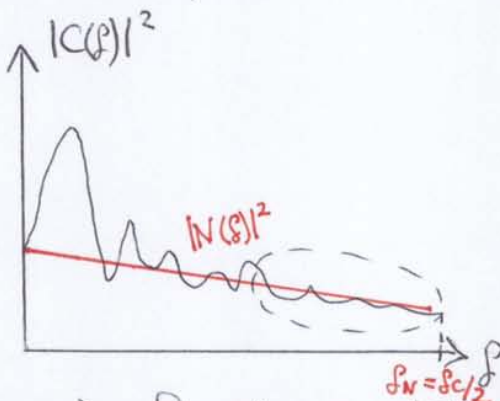 |C(f)|²
|N(f)|²
f
f_N = f_c/2